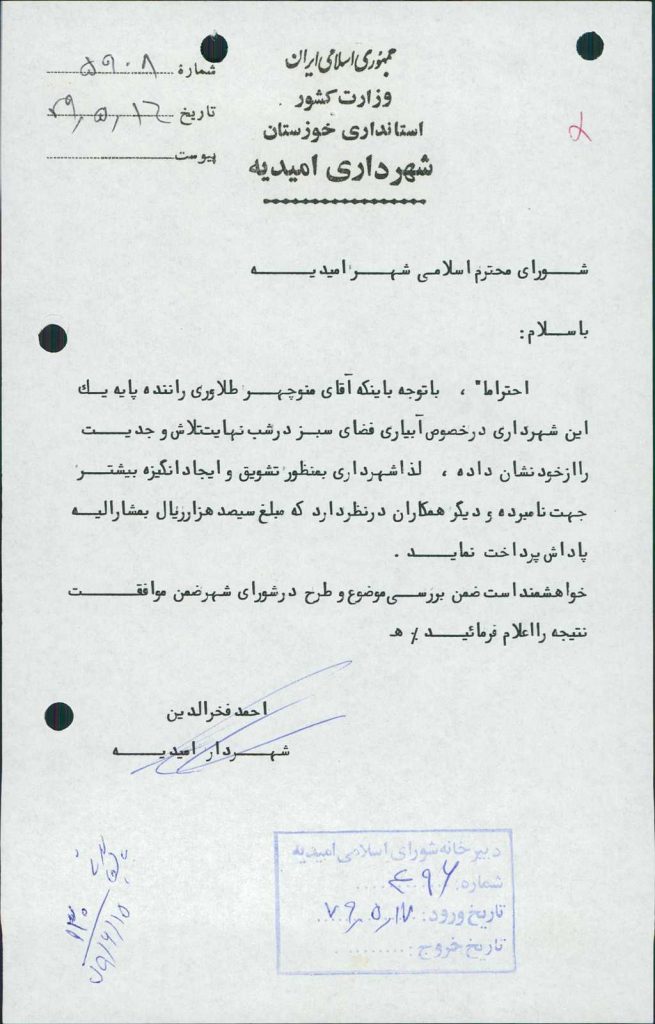 جمهوری اسلامی ایران
وزارت کشور
استانداری خوزستان
شهرداری امیدیه
شماره ۵۹۰۸
تاریخ ۷۹،۵،۱۶
پیوست
شورای محترم اسلامی شهر امیدیه
باسلام:
احتراما" ، باتوجه باینکه آقای منوچهر طلاوری راننده پایه یک
این شهرداری درخصوص آبیاری فضای سبز درشب نهایت تلاش و جدیت
را ازخود نشان داده ، لذا شهرداری بمنظور تشویق و ایجاد انگیزه بیشتر
جهت نامبرده و دیگر همکاران درنظر دارد که مبلغ سیصد هزار ریال بمشارالیه
پاداش پرداخت نماید .
خواهشمند است ضمن بررسی موضوع و طرح درشورای شهر ضمن موافقت
نتیجه را اعلام فرمائید ٪ هـ
احمد فخرالدین
شهردار امیدیه
دبیرخانه شورای اسلامی امیدیه
شماره: ۴۹۶
تاریخ ورود: ۷۹،۵،۱۷
تاریخ خروج:
۷۹/۶/۱۵